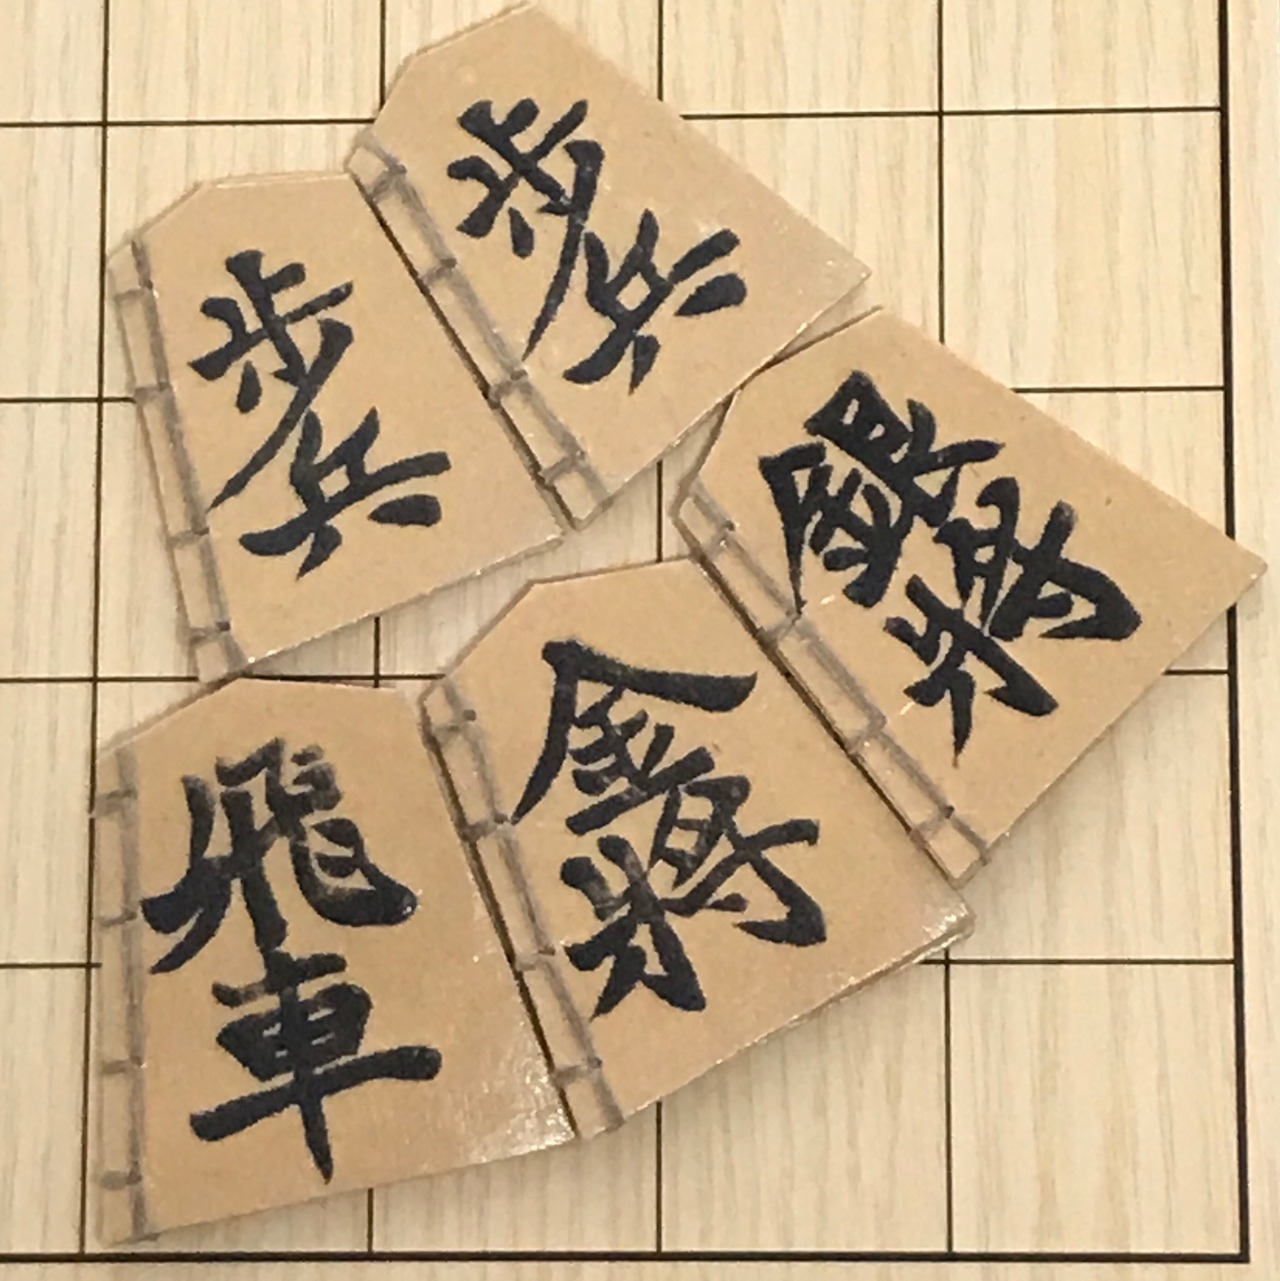 歩兵
歩兵
銀将
金将
飛車